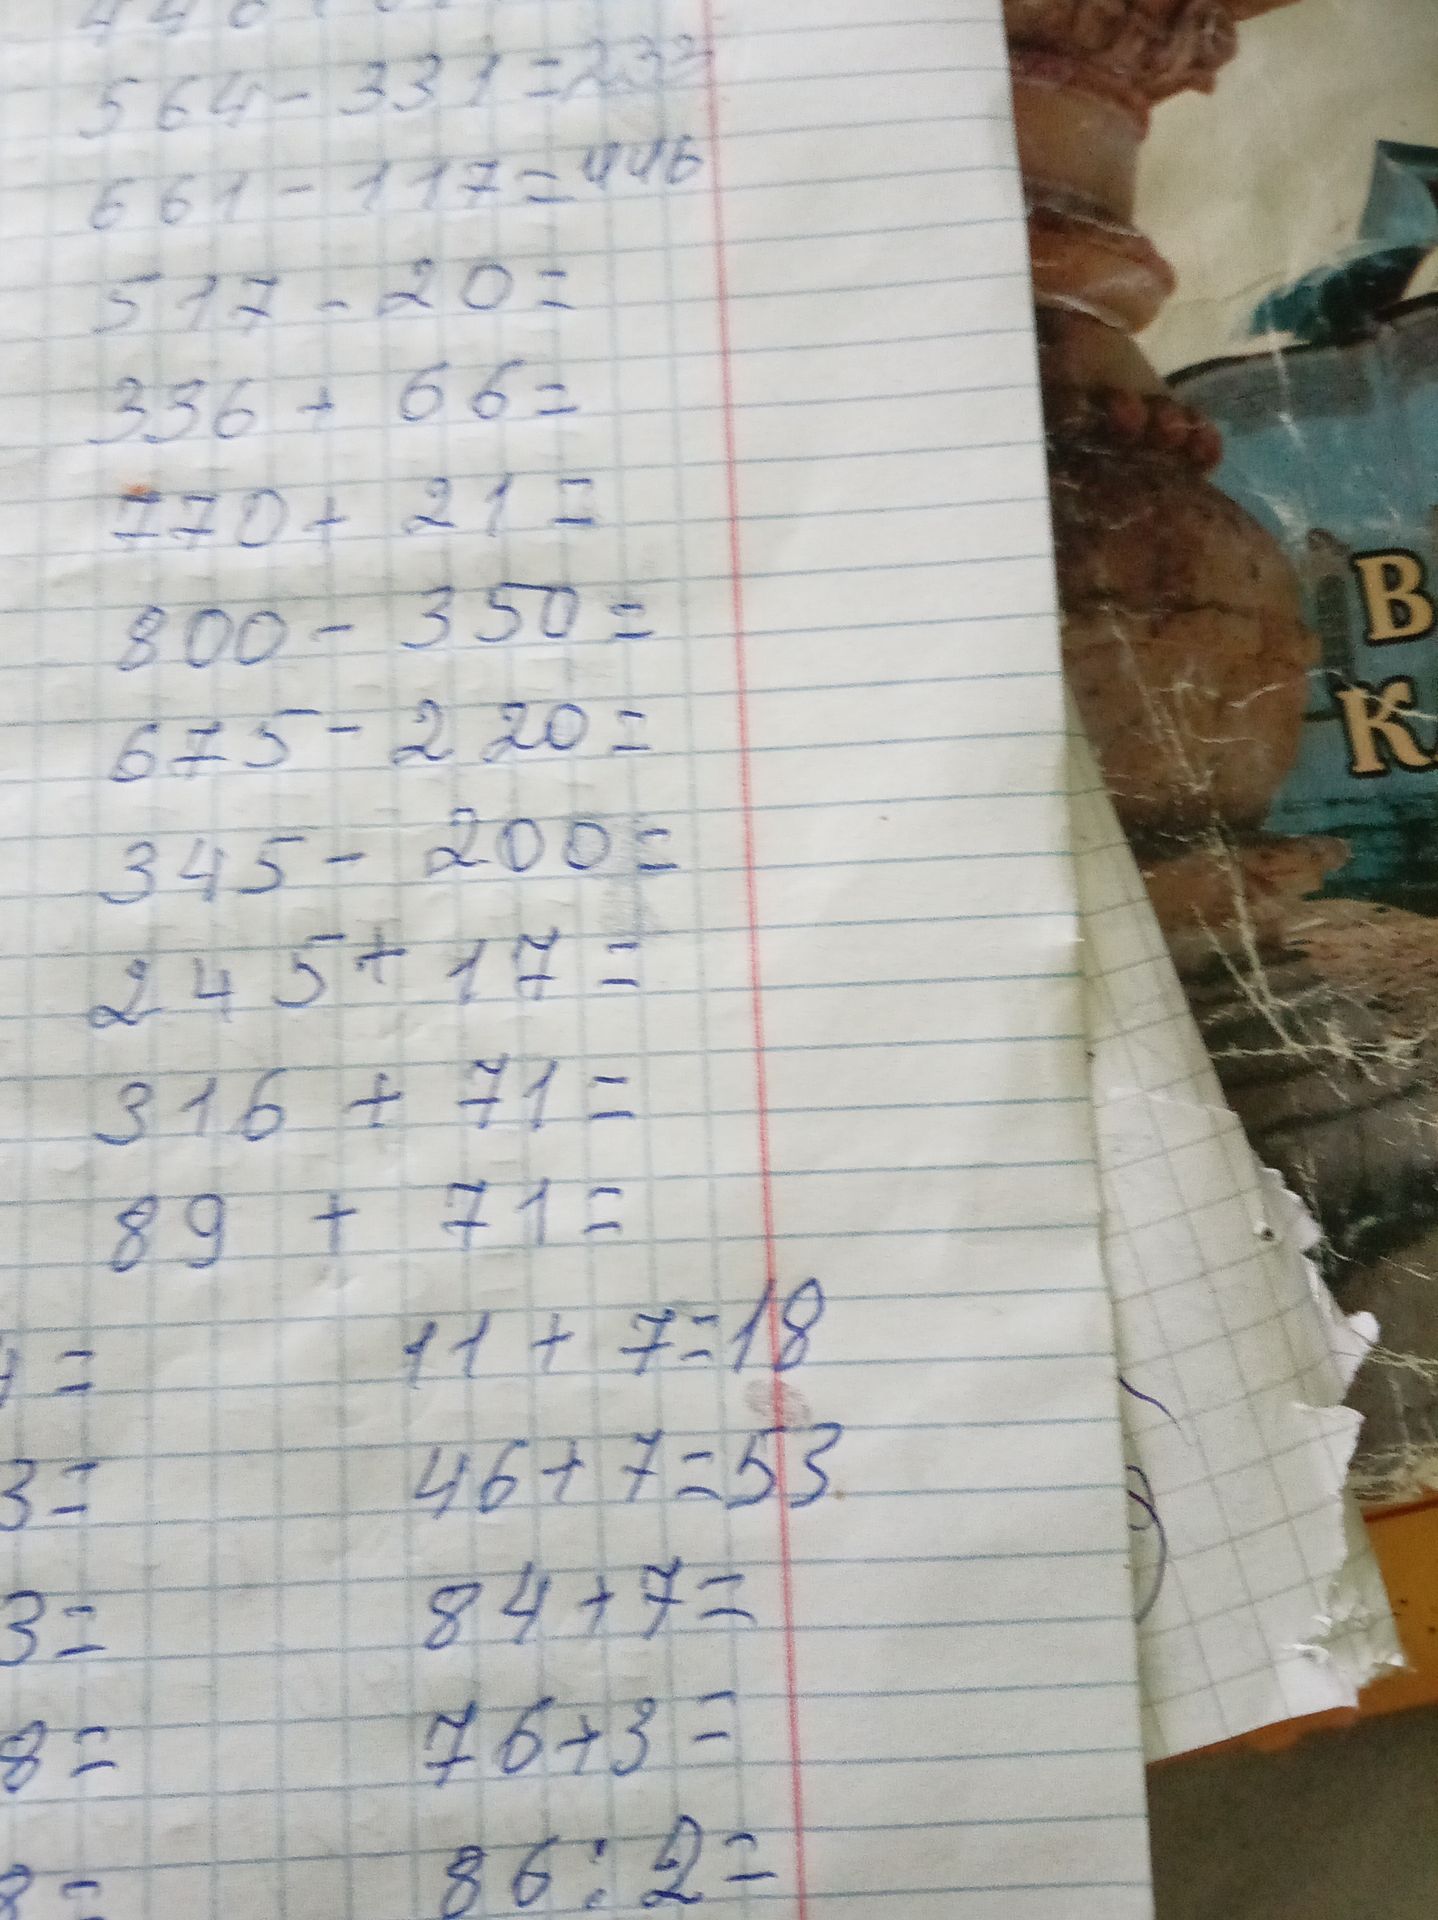 564 - 331 = 232
661 - 117 = 446
517 - 20 =
336 + 66 =
770 + 21 =
800 - 350 =
675 - 220 =
345 - 200 =
245 + 17 =
316 + 71 =
89 + 71 =
= 11 + 7 = 18
3 = 46 + 7 = 53
3 = 84 + 7 =
8 = 76 + 3 =
8 = 86 : 2 =
В
К